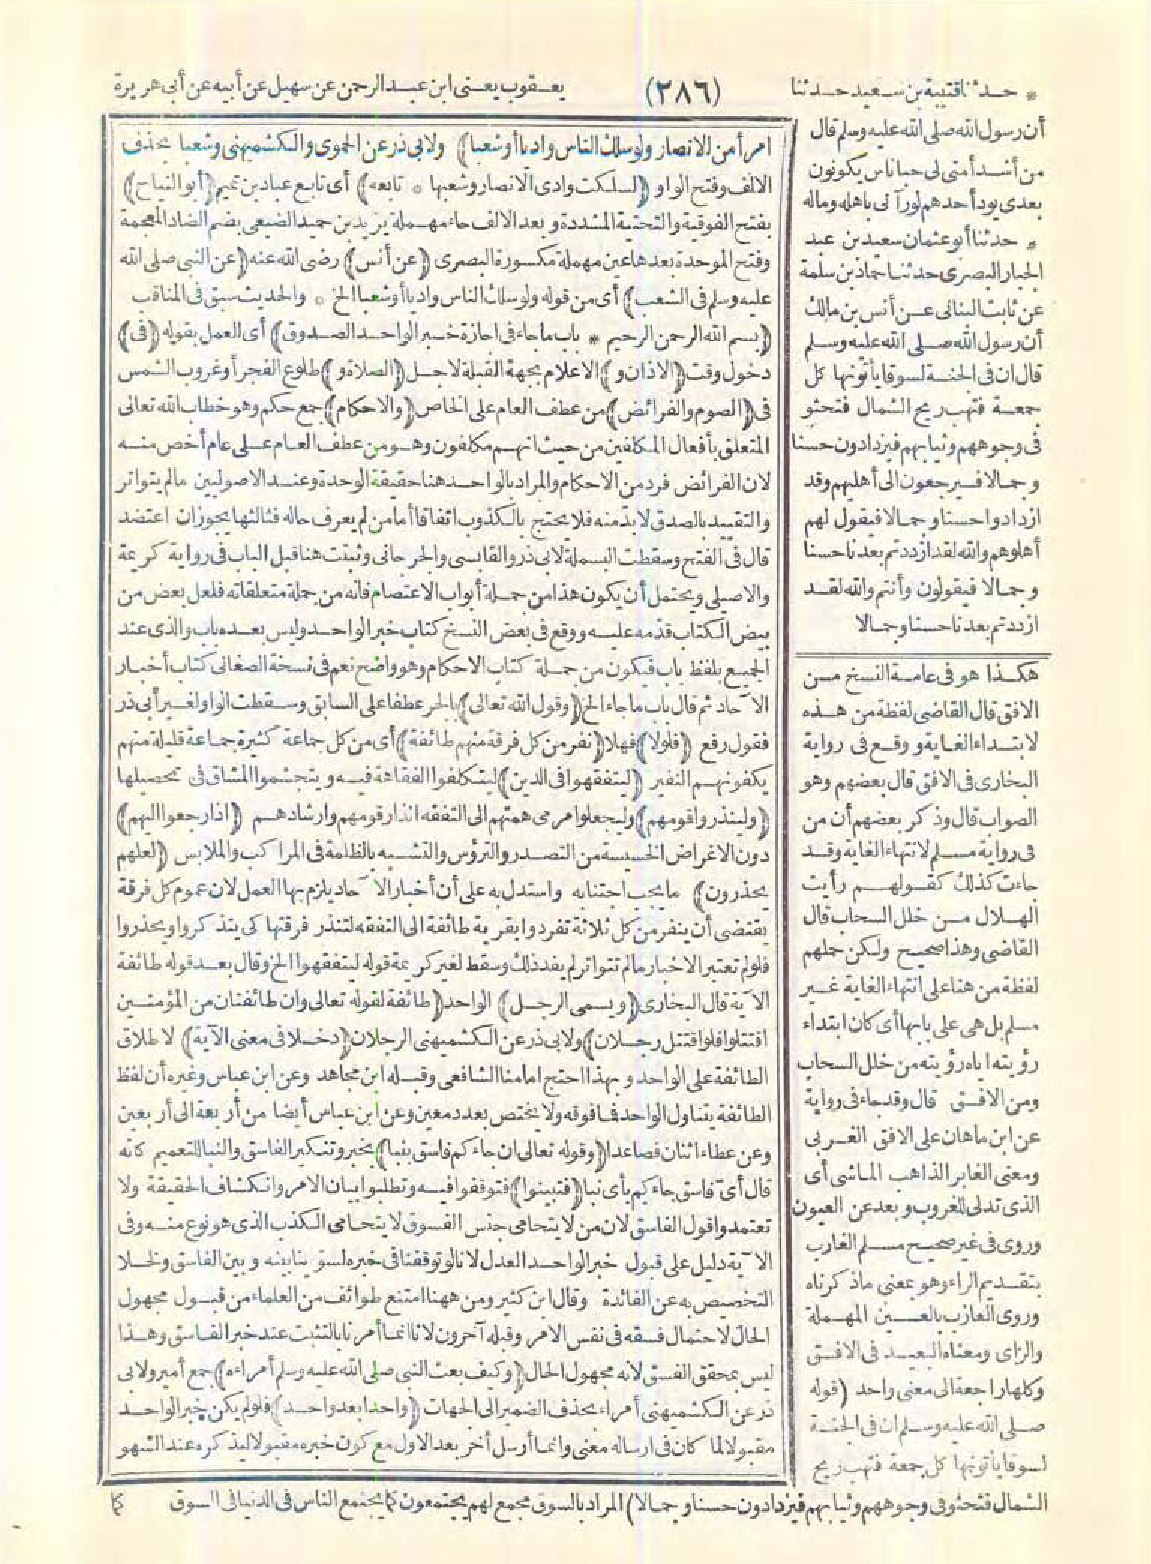 * حدثنا قتيبة بن سعيد حدثنا
(٢٨٦)
يعقوب يعنى ابن عبد الرحمن عن سهيل عن أبيه عن أبى هريرة
أن رسول الله صلى الله عليه وسلم قال
من أشد أمتى لى حبا ناس يكونون
بعدى يود أحدهم لو رآنى بأهله وماله
* حدثنا أبو عثمان سعيد بن عبد
الجبار البصرى حدثنا حماد بن سلمة
عن ثابت البنانى عن أنس بن مالك
أن رسول الله صلى الله عليه وسلم
قال ان فى الجنة لسوقا يأتونها كل
جمعة فتهب ريح الشمال فتحثو
فى وجوههم وثيابهم فيزدادون حسنا
وجمالا فيرجعون الى أهليهم وقد
ازدادوا حسنا وجمالا فيقول لهم
أهلوهم والله لقد ازددتم بعدنا حسنا
وجمالا فيقولون وأنتم والله لقد
ازددتم بعدنا حسنا وجمالا
هكذا هو فى عامة النسخ من
الافق قال القاضى لفظة من هذه
لابتداء الغاية ووقع فى رواية
البخارى فى الافق قال بعضهم وهو
الصواب قال وذكر بعضهم أن من
فى رواية مسلم لانتهاء الغاية وقد
جاءت كذلك كقولهم رأيت
الهلال من خلل السحاب قال
القاضى وهذا صحيح ولكن حملهم
لفظة من هنا على انتهاء الغاية غير
مسلم بل هى على بابها أى كان ابتداء
رؤيته اياه رؤيته من خلل السحاب
ومن الافق قال وقد جاء فى رواية
عن ابن ماهان على الافق الغربى
ومعنى الغابر الذاهب الماشى أى
الذى تدلى للغروب وبعد عن العيون
وروى فى غير صحيح مسلم الغارب
بتقديم الراء وهو بمعنى ماذكرناه
وروى العازب بالعين المهملة
والزاى ومعناه البعيد فى الافق
وكلها راجعة الى معنى واحد (قوله
صلى الله عليه وسلم ان فى الجنة
لسوقا يأتونها كل جمعة فتهب ريح
امرأ من الانصار ولو سلك الناس واديا أو شعبا) ولابى ذر عن الحموى والكشميهنى وشعبا بحذف
الالف وفتح الواو (لسلكت وادى الانصار وشعبها * تابعه) أى تابع عباد بن تميم (أبو التياح)
بفتح الفوقية والتحتية المشددة وبعد الالف حاء مهملة يزيد بن حميد الضبعى بضم الضاد المعجمة
وفتح الموحدة بعدها عين مهملة مكسورة البصرى (عن أنس) رضى الله عنه (عن النبى صلى الله
عليه وسلم فى الشعب) أى من قوله ولو سلك الناس واديا أو شعبا الخ * والحديث سبق فى المناقب
(بسم الله الرحمن الرحيم * باب ماجاء فى اجازة خبر الواحد الصدوق) أى العمل بقوله (فى)
دخول وقت (الاذان و) الاعلام بجهة القبلة لاجل (الصلاة و) طلوع الفجر أو غروب الشمس
فى (الصوم والفرائض) من عطف العام على الخاص (والاحكام) جمع حكم وهو خطاب الله تعالى
المتعلق بأفعال المكلفين من حيث انهم مكلفون وهو من عطف العام على عام أخص منه
لان الفرائض فرد من الاحكام والمراد بالواحد هنا حقيقة الوحدة وعند الاصوليين مالم يتواتر
والتقييد بالصدق لابد منه فلا يحتج بالكذوب اتفاقا أما من لم يعرف حاله فثالثها يجوز ان اعتضد
قال فى الفتح وسقطت البسملة لابى ذر والقابسى والجرجانى وثبتت هنا قبل الباب فى رواية كريمة
والاصيلى ويحتمل أن يكون هذا من جملة أبواب الاعتصام فانه من جملة متعلقاته فلعل بعض من
بيض الكتاب قدمه عليه ووقع فى بعض النسخ كتاب خبر الواحد وليس بعده باب والذى عند
الجميع بلفظ باب فيكون من جملة كتاب الاحكام وهو واضح نعم فى نسخة الصغانى كتاب أخبار
الآحاد ثم قال باب ماجاء الخ (وقول الله تعالى) بالجر عطفا على السابق وسقطت الواو لغير أبى ذر
فقول رفع (فلولا) فهلا (نفر من كل فرقة منهم طائفة) أى من كل جماعة كثيرة جماعة قليلة منهم
يكفونهم النفير (ليتفقهوا فى الدين) ليتكلفوا الفقاهة فيه ويتجشموا المشاق فى تحصيلها
(ولينذروا قومهم) وليجعلوا مرمى همتهم الى التفقه انذار قومهم وارشادهم (اذا رجعوا اليهم)
دون الاغراض الخسيسة من التصدر والترؤس والتشبه بالظلمة فى المراكب والملابس (لعلهم
يحذرون) مايجب اجتنابه واستدل به على أن أخبار الآحاد يلزم بها العمل لان عموم كل فرقة
يقتضى أن ينفر من كل ثلاثة تفردوا بقرية طائفة الى التفقه لتنذر فرقتها كى يتذكروا ويحذروا
فلو لم تعتبر الاخبار مالم تتواتر لم يفد ذلك وسقط لغير كريمة قوله ليتفقهوا الخ وقال بعد قوله طائفة
الآية قال البخارى (ويسمى الرجل) الواحد (طائفة لقوله تعالى وان طائفتان من المؤمنين
اقتتلوا فلو اقتتل رجلان) ولابى ذر عن الكشميهنى الرجلان (دخلا فى معنى الآية) لاطلاق
الطائفة على الواحد وبهذا احتج امامنا الشافعى وقبله ابن مجاهد وعن ابن عباس وغيره أن لفظ
الطائفة يتناول الواحد فما فوقه ولا يختص بعدد معين وعن ابن عباس أيضا من أربعة الى أربعين
وعن عطاء اثنان فصاعدا (وقوله تعالى ان جاءكم فاسق بنبا) بخبر وتنكير الفاسق والنبا للتعميم كانه
قال أى فاسق جاءكم بأى نبا (فتبينوا) فتوقفوا فيه وتطلبوا بيان الامر وانكشاف الحقيقة ولا
تعتمدوا قول الفاسق لان من لا يتحامى جنس الفسوق لا يتحامى الكذب الذى هو نوع منه وفى
الآية دليل على قبول خبر الواحد العدل لانا لو توقفنا فى خبره لسوينا بينه وبين الفاسق ولخلا
التخصيص به عن الفائدة وقال ابن كثير ومن ههنا امتنع طوائف من العلماء من قبول مجهول
الحال لاحتمال فسقه فى نفس الامر وقبله آخرون لانا انما أمرنا بالتثبت عند خبر الفاسق وهذا
ليس بمحقق الفسق لانه مجهول الحال (وكيف بعث النبى صلى الله عليه وسلم أمراءه) جمع أمير ولابى
ذر عن الكشميهنى أمراء بحذف الضمير الى الجهات (واحدا بعد واحد) فلو لم يكن خبر الواحد
مقبولا لما كان فى ارساله معنى وانما أرسل آخر بعد الاول مع كون خبره مقبولا ليذكره عند السهو
الشمال فتحثو فى وجوههم وثيابهم فيزدادون حسنا وجمالا) المراد بالسوق مجمع لهم يجتمعون كما يجتمع الناس فى الدنيا فى السوق
كما